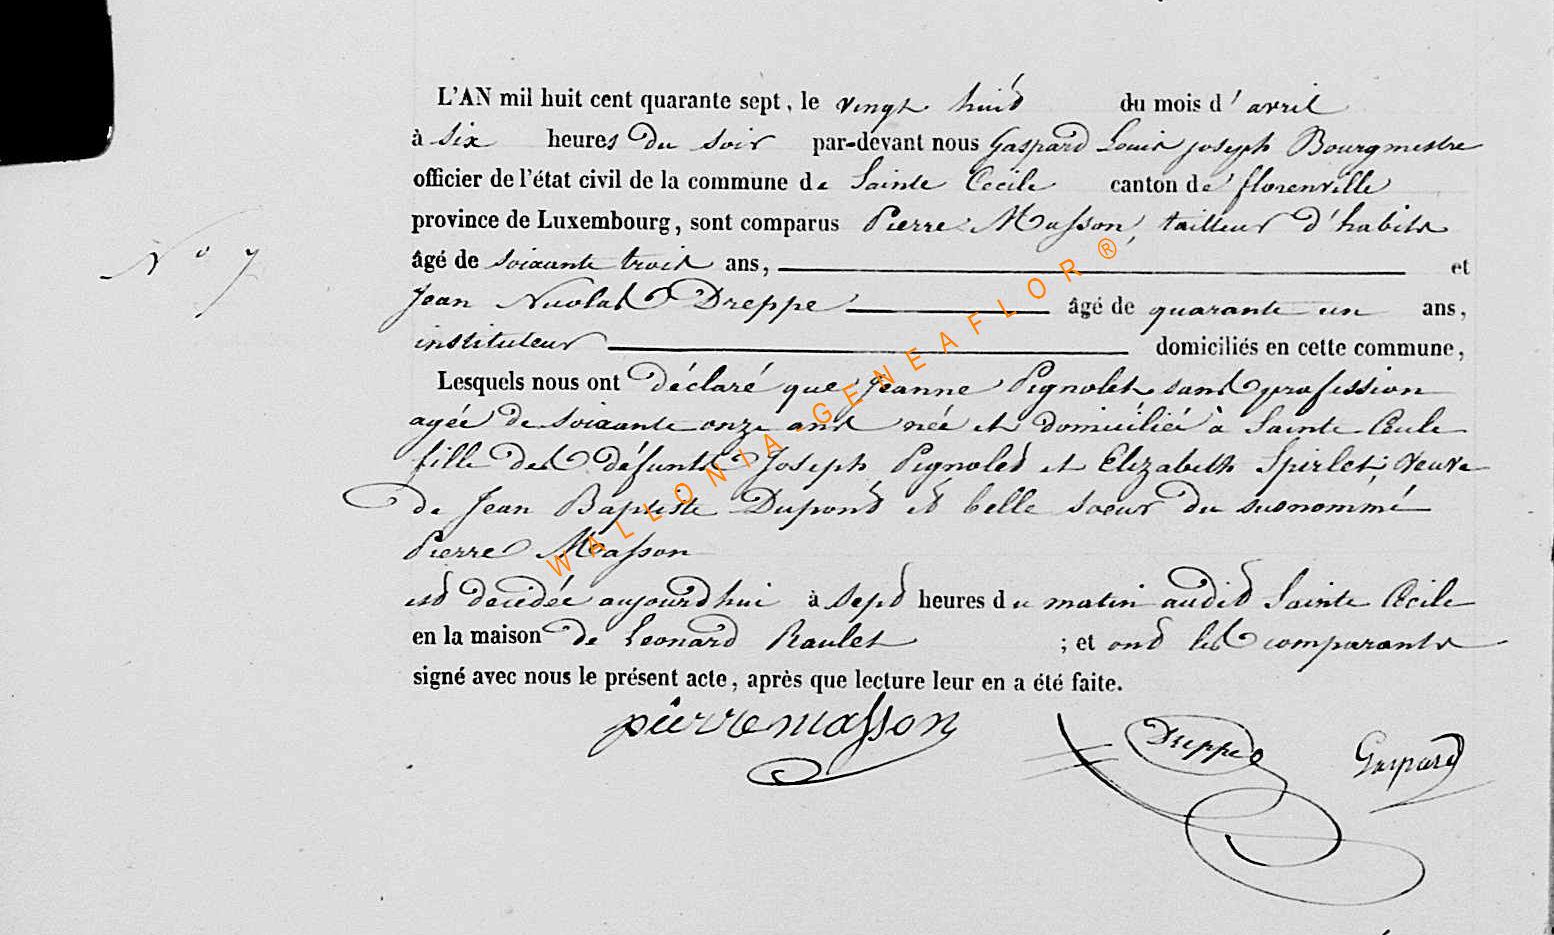 L'AN mil huit cent quarante sept, le vingt huit du mois d'avril
à six heures du soir par-devant nous Gaspard Louis joseph Bourgmestre
officier de l'état civil de la commune de Sainte Cécile canton de florenville
province de Luxembourg, sont comparus Pierre Masson, tailleur d'habits
N° 7
âgé de soixante trois ans, et
Jean Nicolas Dreppe âgé de quarante un ans,
instituteur domiciliés en cette commune,
Lesquels nous ont déclaré que Jeanne Pignolet sans profession
agée de soixante onze ans née et domiciliée à Sainte Cécile
fille des défunts Joseph Pignolet et Elizabeth Spirlet, veuve
de Jean Baptiste Dupond et belle soeur du susnommé
Pierre Masson
est decédée aujourd'hui à sept heures du matin audit Sainte Cécile
en la maison de Leonard Raulet ; et ont les comparants
signé avec nous le présent acte, après que lecture leur en a été faite.
pierre masson Dreppe Gaspard
WALLONIA-GENEAFLOR®